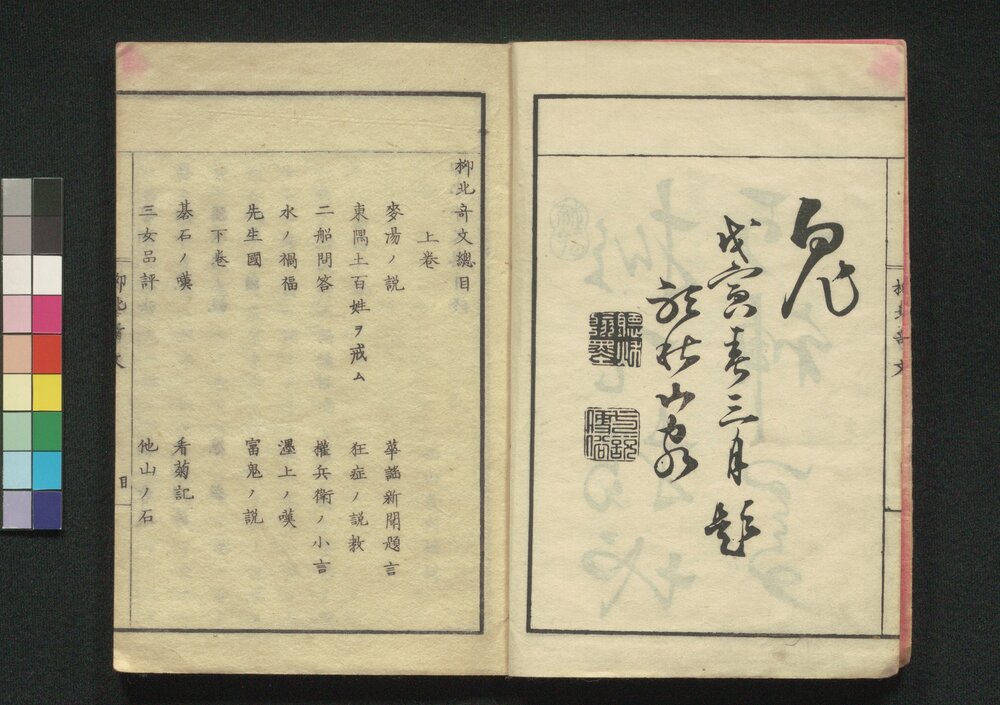 鬼
戊寅春三月題
聽秋山家
柳北奇文總目
上卷
麥湯ノ説
華謡新聞題言
東隅土百姓ヲ戒ム
狂症ノ説教
二船問答
權兵衛ノ小言
水ノ禍福
墨上ノ嘆
先生國
富鬼ノ説
下卷
碁石ノ嘆
看菊記
三女品評
他山ノ石
柳北奇文
目